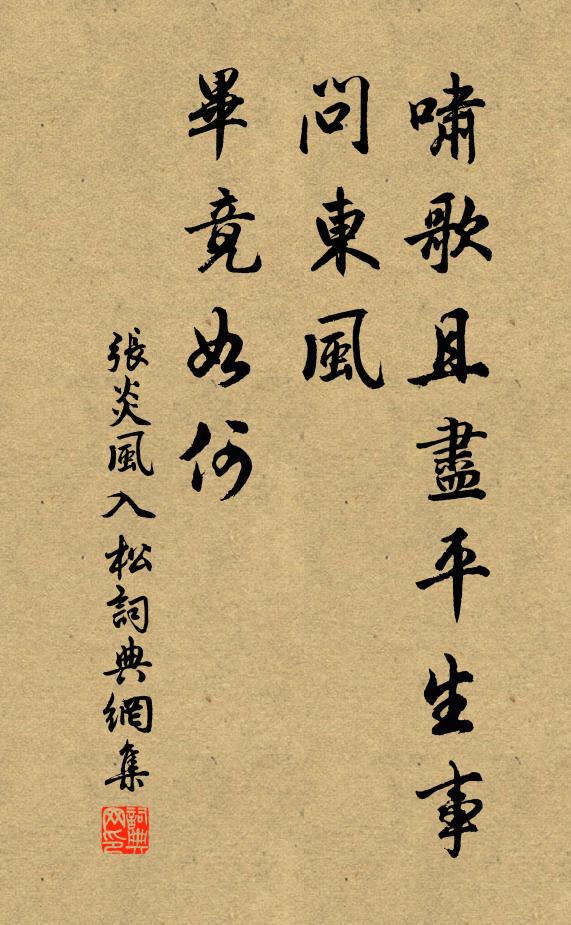 嘯歌且盡平生事
問東風
畢竟如何
張炎風入松詞典網集
詞典
网印